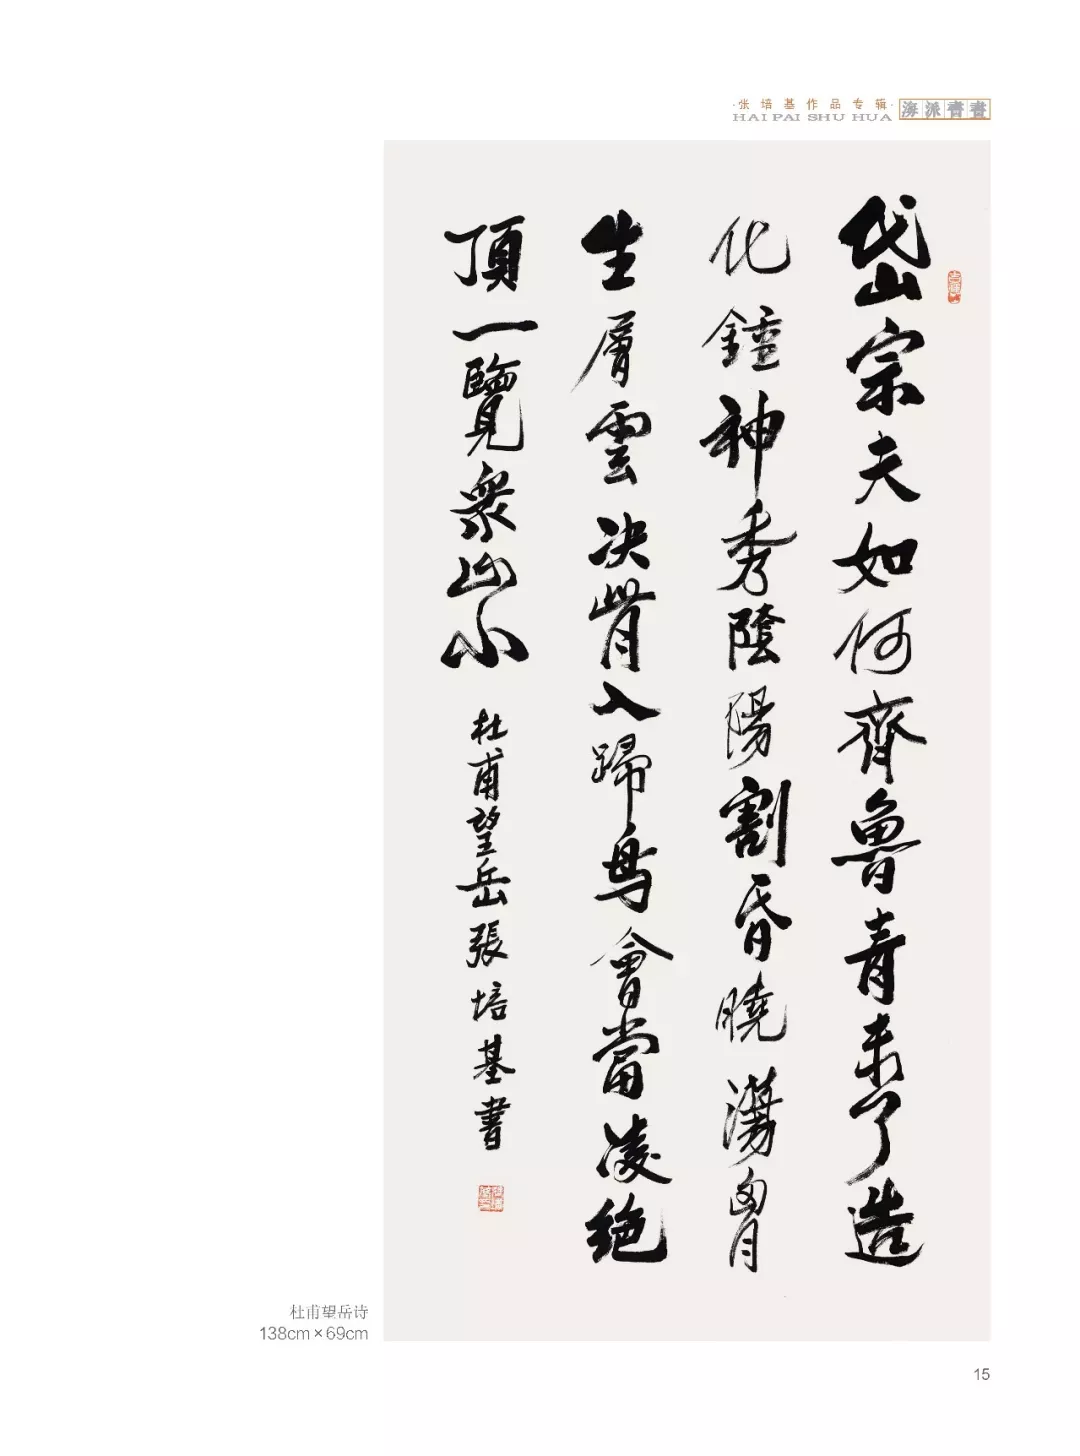 ·张培基作品专辑·
HAI PAI SHU HUA
海派書畫
岱宗夫如何齊魯青未了造
化鍾神秀陰陽割昏曉蕩胷
生層雲決眥入歸鳥會當凌絕
頂一覽衆山小
杜甫望岳張培基書
杜甫望岳诗
138cm×69cm
15